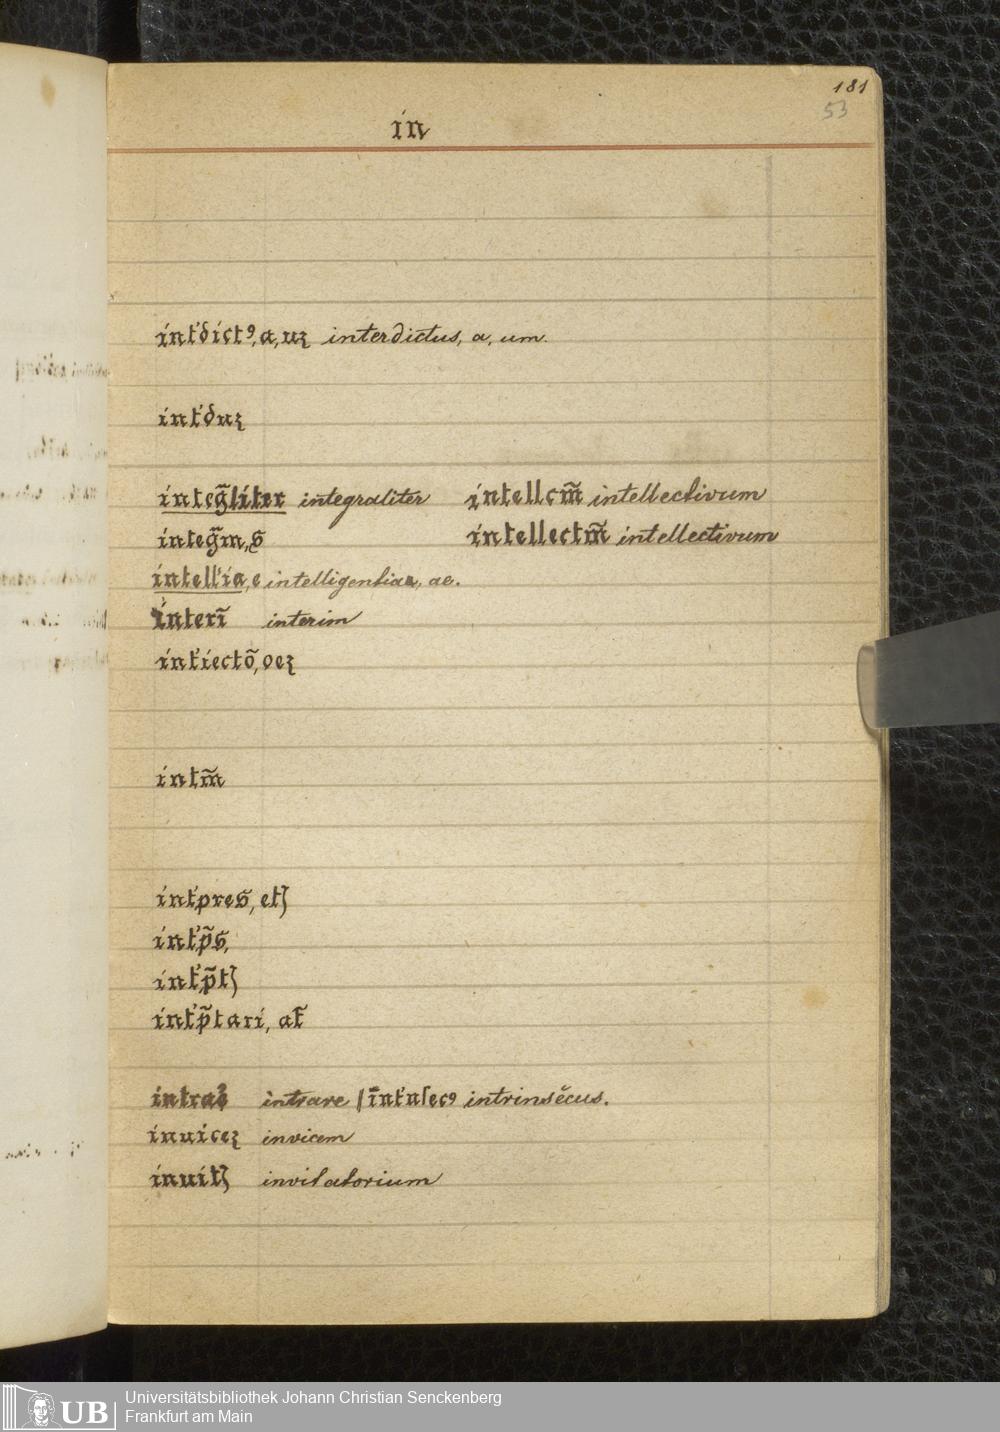 181
53
in
int̕dictꝰ, a, uꝫ interdictus, a, um.
int̕duꝫ
integ̃liter integraliter intellcm̃ intellectivum
integ̃m, s intellectm̃ intellectivum
intell̕ia, e intelligentia, ae.
interĩ interim
int̕iectõ, oeꝫ
intm̃
int̕pres, et
int̕p̃s,
int̕p̃t
int̕p̃tari, at̃
intrare / īt̕nſecꝰ intrinsĕcus.
inuiceꝫ invicem
inuit invitatorium
UB Universitätsbibliothek Johann Christian Senckenberg
Frankfurt am Main